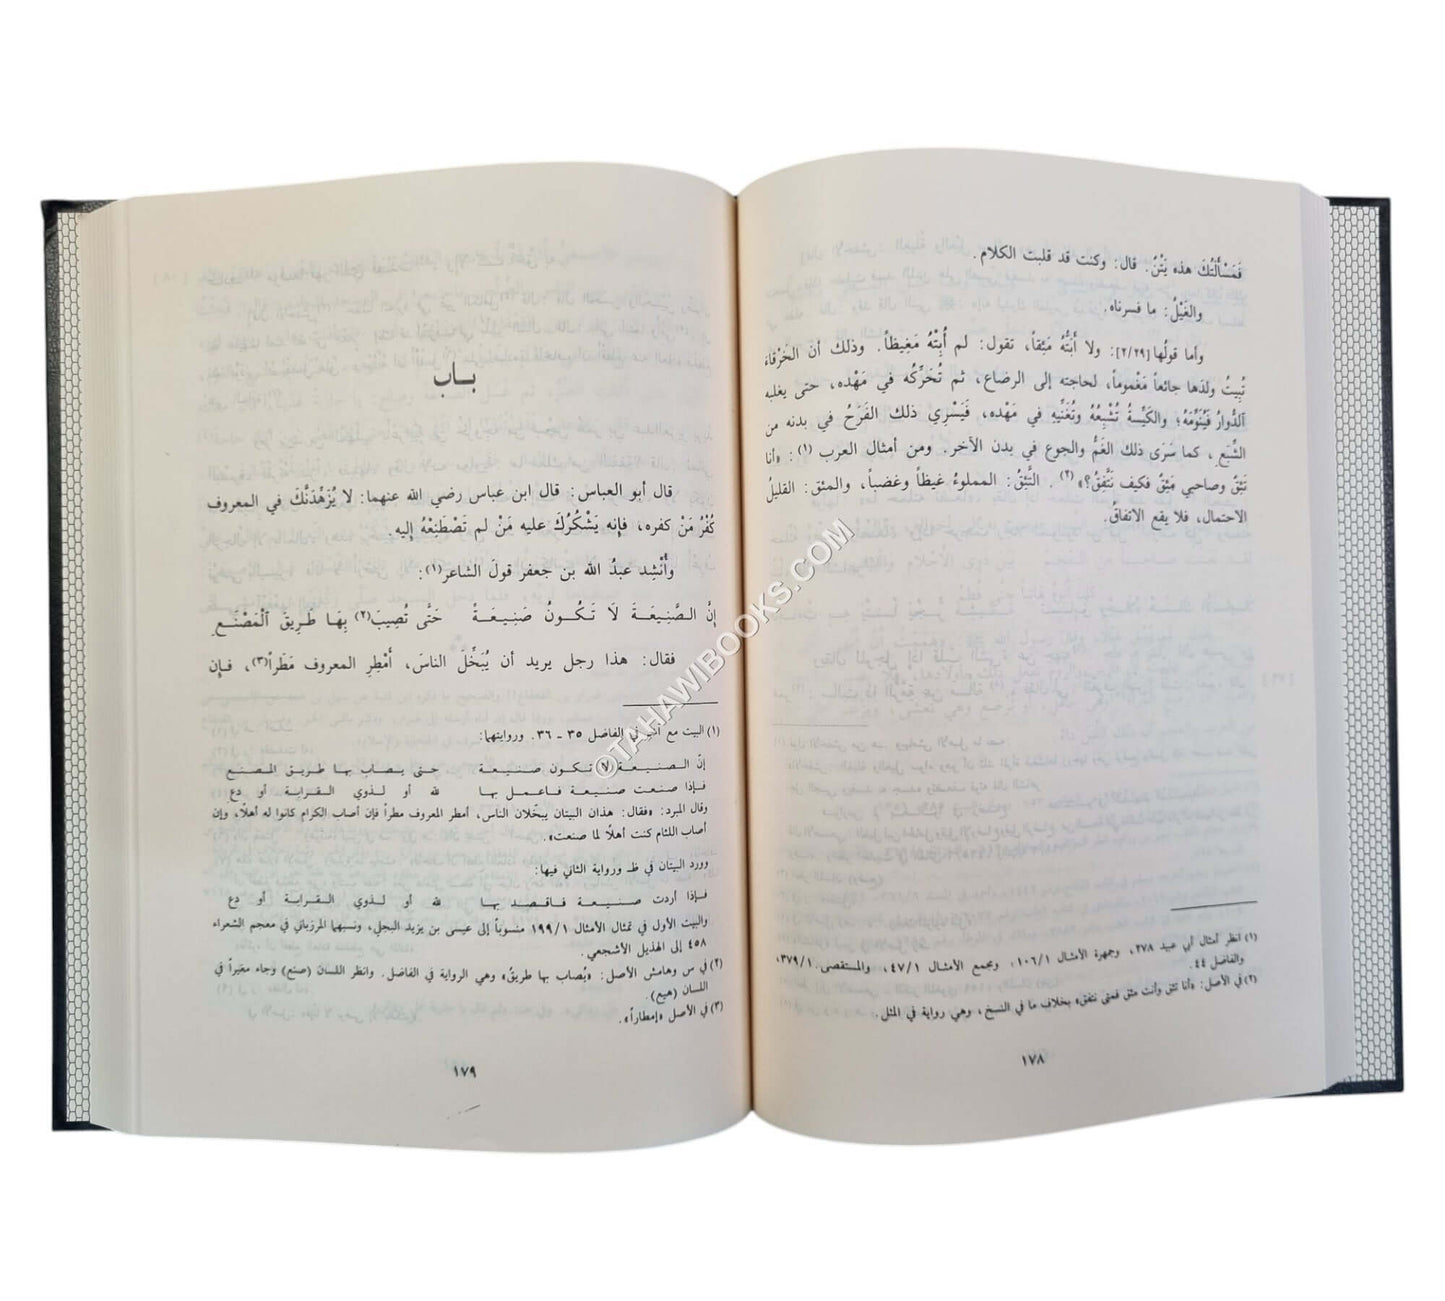 فَمَسْأَلَتُكَ هذه يَثْنٌ. قال: وكنت قد قلبت الكلام.
والغَيْلُ: ما فسرناه.
وأما قولُها [٢/٢٩]: ولا أَبَتُّهُ مَئِقاً، تقول: لم أُبِتْهُ مَغِيظاً. وذلك أن الخَرْقاءَ
تُبِيتُ ولدَها جائعاً مَغْموماً، لحاجته إلى الرضاع، ثم تُحَرِّكُه في مَهْده، حتى يغلبه
الدُّوارُ فَيُنَوِّمَهُ؛ والكَيِّسةُ تُشْبِعُهُ وتُغَنِّيهِ في مَهْده، فَيَسْرِي ذلك الفَرَحُ في بدنه من
الشِّبَعِ، كما سَرَى ذلك الغَمُّ والجوع في بدن الآخر. ومن أمثال العرب (١): «أنا
تَئِقٌ وصاحبي مَئِقٌ فكيف نَتَّفِقُ؟» (٢). التَّئِقُ: المملوءُ غيظاً وغضباً، والمئق: القليلُ
الاحتمال، فلا يقع الاتفاقُ.
(١) انظر أمثال أبي عبيد ٢٧٨، وجمهرة الأمثال ١٠٦/١، ومجمع الأمثال ٤٧/١، والمستقصى ٣٧٩/١،
والفاضل ٤٤.
(٢) في الأصل: «أنا تئق وأنت مئق فمتى نتفق» بخلاف ما في النسخ، وهي رواية في المثل.
١٧٨
باب
قال أبو العباس: قال ابن عباس رضي الله عنهما: لا يُزَهِّدَنَّكَ في المعروف
كُفْرُ مَنْ كفره، فإنه يَشْكُرُكَ عليه مَنْ لم تَصْطَنِعْهُ إليه.
وأُنْشِد عبدُ الله بن جعفر قولَ الشاعر(١):
إِنَّ الصَّنِيعَةَ لَا تَكُونُ صَنِيعَةً حَتَّى تُصِيبَ(٢) بِهَا طَرِيقَ الْمَصْنَعِ
فقال: هذا رجل يريد أن يُبَخِّلَ الناسَ، أَمْطِرِ المعروف مَطَراً(٣)، فإن
(١) البيت مع آخر في الفاضل ٣٥ - ٣٦. وروايتهما:
إنّ الصنيعة لا تكون صنيعة حتى يصاب بها طريق المصنع
فإذا صنعت صنيعة فاعمل بها لله أو لذوي القرابة أو دع
وقال المبرد: «فقال: هذان البيتان يبخّلان الناس، أمطر المعروف مطراً فإن أصاب الكرام كانوا له أهلًا، وإن
أصاب اللئام كنت أهلًا لما صنعت».
وورد البيتان في ظـ ورواية الثاني فيها:
فإذا أردت صنيعة فاقصد بها لله أو لذوي القرابة أو دع
والبيت الأول في تمثال الأمثال ١٩٩/١ منسوباً إلى عيسى بن يزيد البجلي، ونسبهما المرزباني في معجم الشعراء
٤٥٨ إلى الهذيل الأشجعي.
(٢) في س وهامش الأصل: «يُصاب بها طريقُ» وهي الرواية في الفاضل. وانظر اللسان (صنع) وجاء مغيراً في
اللسان (هيع).
(٣) في الأصل «إمطاراً».
١٧٩
©TAHAWIBOOKS.COM